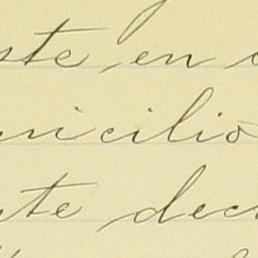 ste en
nicilio
ste dec